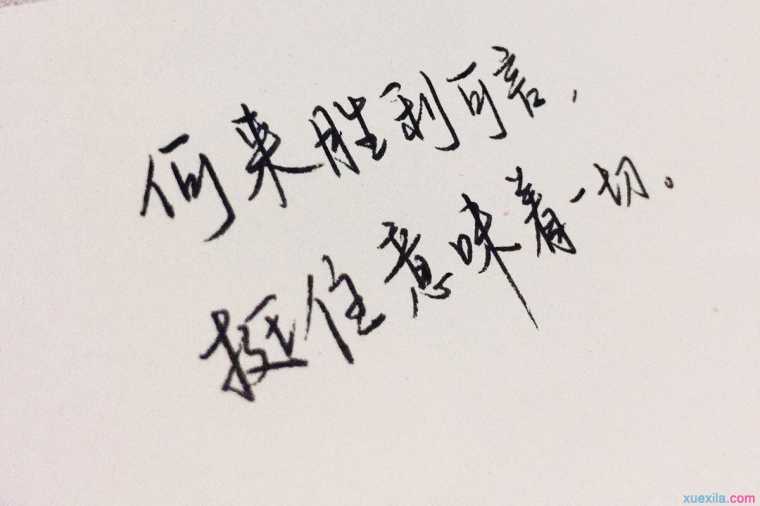 何来胜利可言，
挺住意味着一切。
xuexila.com